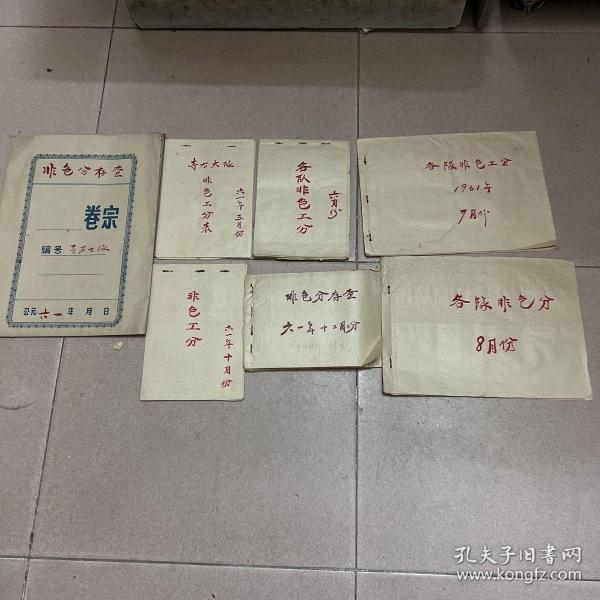 非色分存查
卷宗
编号 寺右大队
公元六一年 月 日
寺右大队
非色工分表
六一年三月份
各队非色工分
六月份
各隊非色工分
1961年
7月份
非色工分
六一年十月份
非色分存查
六一年十二月分
各隊非色分
8月份
孔夫子旧书网
www.kongfz.com